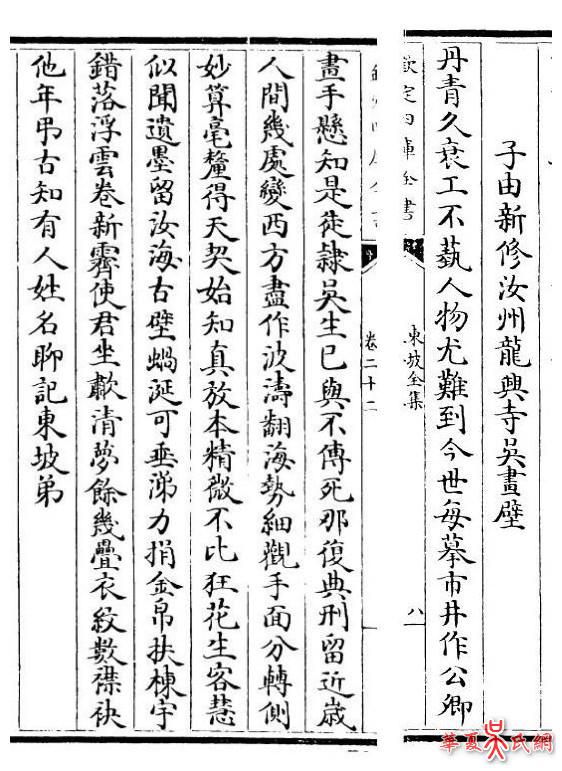 子由新修汝州龍興寺吳畫壁
丹青久衰工不蓺人物尤難到今世每摹市井作公卿
欽定四庫全書
東坡全集
卷二十二
八
畫手懸知是徒隸吳生已與不傳死那復典刑留近歲
人間幾處變西方盡作波濤翻海勢細觀手面分轉側
妙算毫釐得天契始知真放本精微不比狂花生客慧
似聞遺墨留汝海古壁蝸涎可垂涕力捐金帛扶棟宇
錯落浮雲卷新霽使君坐歗清夢餘幾疊衣紋數襟袂
他年弔古知有人姓名聊記東坡弟
華夏吳氏網